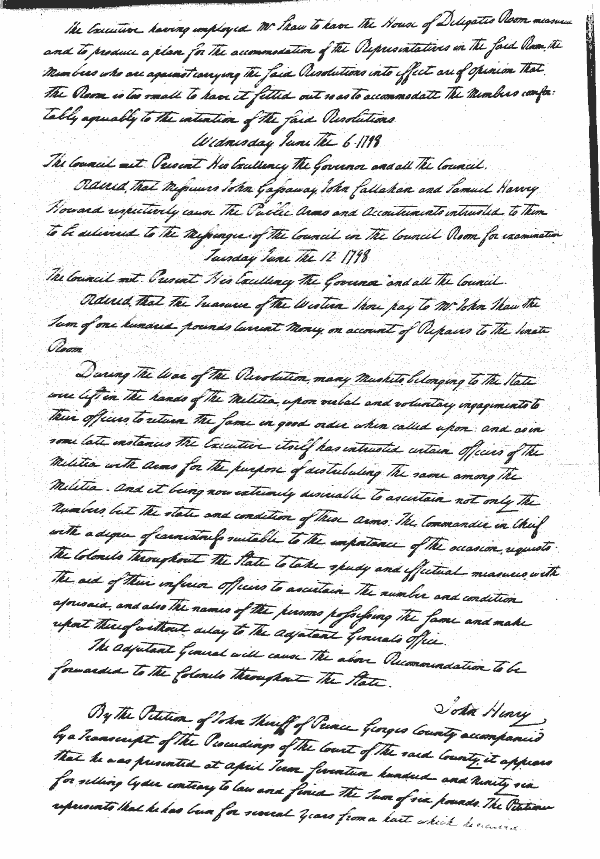 The Executive having employed Mr Shaw to have the House of Delegates Room measured
and to produce a plan for the accommodation of the Representatives in the said Room, the
Members who are against carrying the said Resolutions into effect are of opinion that
the Room is too small to have it fitted out so as to accommodate the Members comfor:
tably agreeably to the intention of the said Resolutions
Wednesday June the 6. 1798
The Council met. Present His Excellency the Governor and all the Council.
Ordered, that Messieurs John Gassaway, John Callahan and Samuel Harvey
Howard respectively cause the Public Arms and Accoutrements intrusted to them
to be delivered to the Messenger of the Council in the Council Room for examination
Tuesday June the 12 1798
The Council met. Present His Excellency the Governor and all the Council.
Ordered, that the Treasurer of the Western Shore pay to Mr John Shaw the
Sum of one hundred pounds Current Money on account of Repairs to the Senate
Room
During the War of the Revolution, many Muskets, belonging to the State
were left in the hands of the Militia, upon verbal and voluntary engagements to
their officers to return the same in good order when called upon: and as in
some late instances the Executive itself has intrusted certain officers of the
Militia with Arms for the purpose of distributing the same among the
Militia. And it being now extremely desireable to ascertain not only the
Numbers but the state and condition of these Arms: The Commander in Chief
with a degree of earnestness suitable to the importance of the occasion, requests
the Colonels throughout the State to take speedy and effectual measures, with
the aid of their inferior officers to ascertain the number and condition
aforesaid, and also the names of the persons possessing the same and make
report thereof without delay to the Adjutant Generals Office.
The Adjutant General will cause the above Recommendation to be
forwarded to the Colonels throughout the State.
John Henry
By the Petition of John Sheriff of Prince Georges County accompanied
by a Transcript of the Proceedings of the Court of the said County, it appears
that he was presented at April Term seventeen hundred and ninety six
for selling Cyder contrary to law and fined the sum of six pounds. The Petitioner
represents that he has been for several years from a hurt which he received